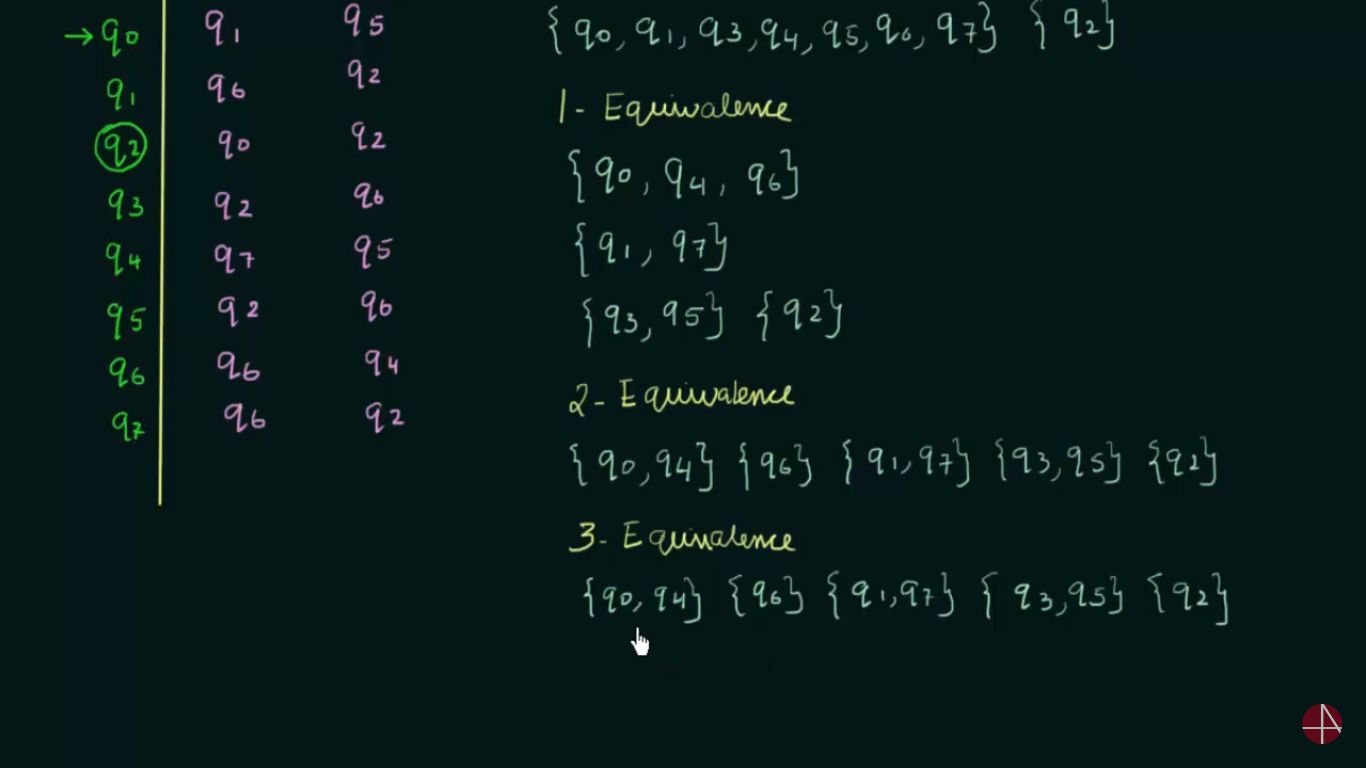 → q0 q1 q5
q1 q6 q2
q2 q0 q2
q3 q2 q6
q4 q7 q5
q5 q2 q6
q6 q6 q4
q7 q6 q2
{ q0, q1, q3, q4, q5, q6, q7} { q2}
1- Equivalence
{q0, q4, q6}
{q1, q7}
{q3, q5} {q2}
2- Equivalence
{q0, q4} {q6} {q1, q7} {q3, q5} {q2}
3- Equivalence
{q0, q4} {q6} {q1, q7} { q3, q5} {q2}